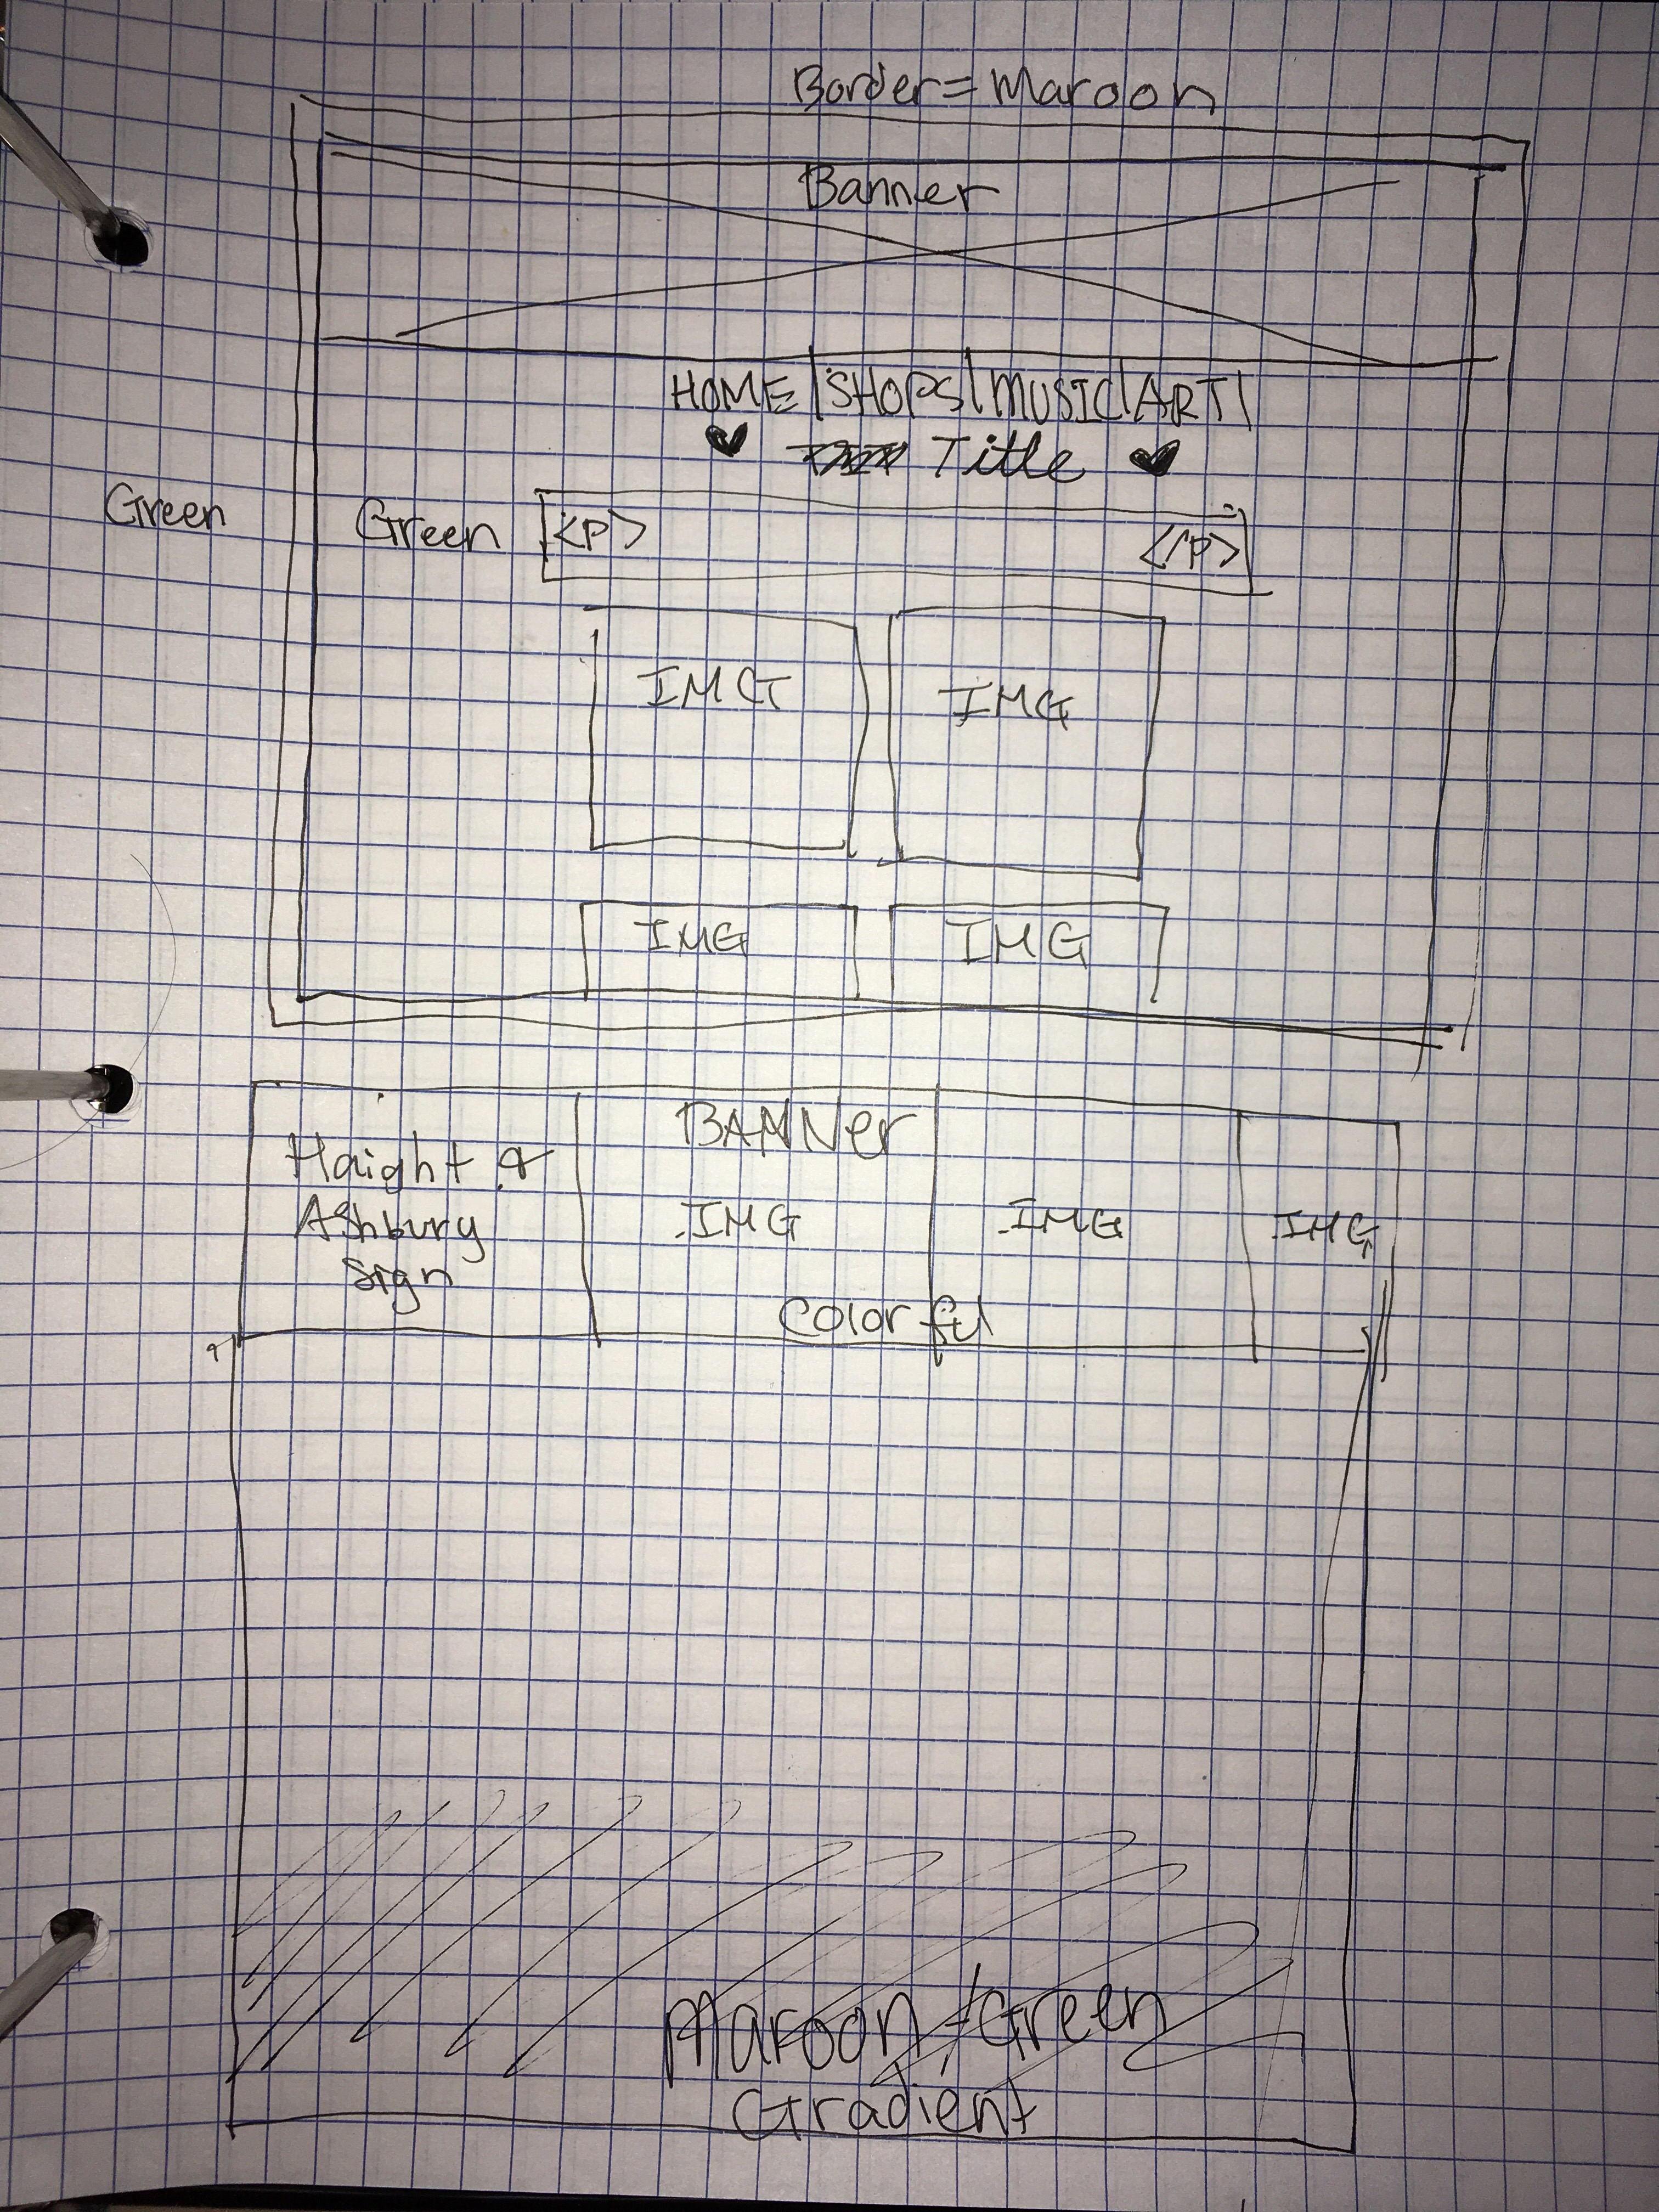 Border = Maroon
Banner
HOME | SHOPS | MUSIC | ART |
♥ Title ♥
Green
Green <P> </P>
IMG IMG
IMG IMG
BANNer
Haight &
Ashbury
Sign
IMG IMG IMG
Colorful
Maroon/Green
Gradient